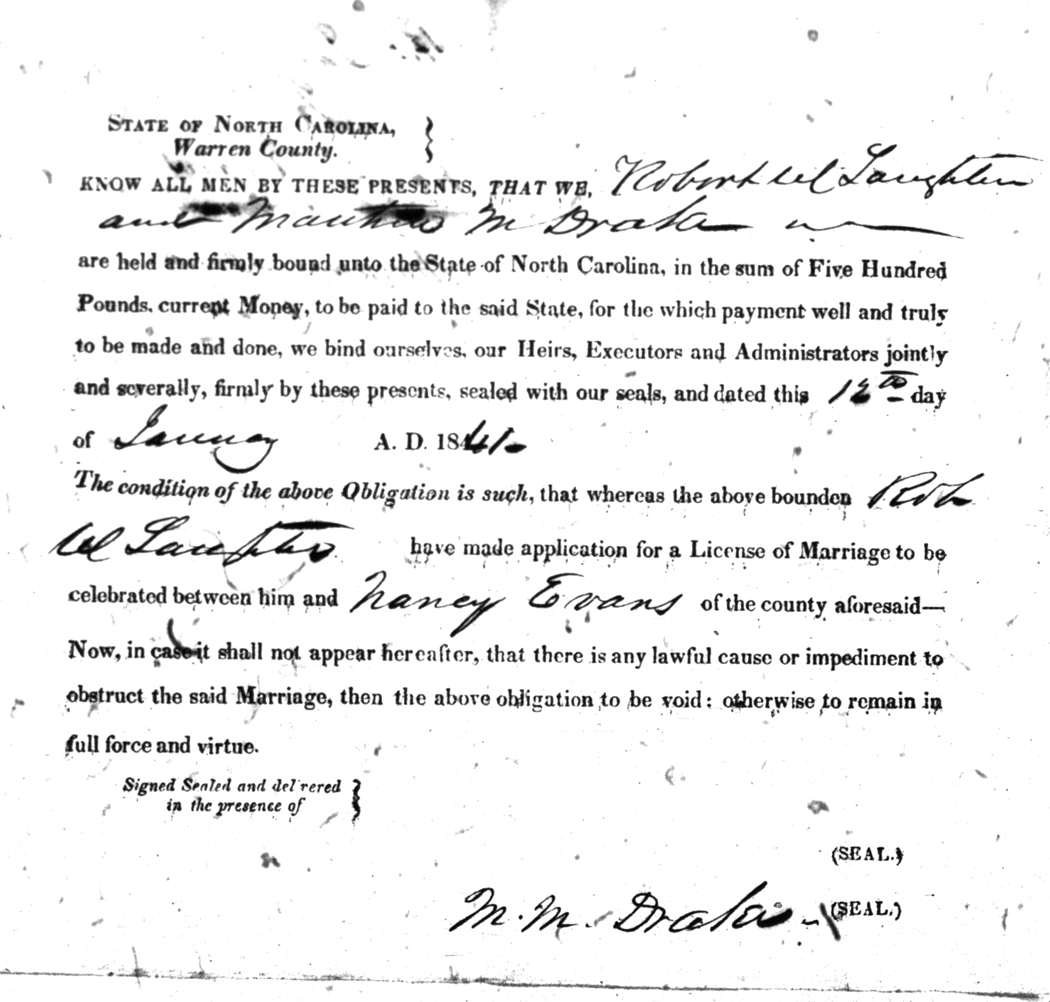 STATE OF NORTH CAROLINA,
Warren County.
KNOW ALL MEN BY THESE PRESENTS, THAT WE, Robert W Laughter
and Matthew M Drake
are held and firmly bound unto the State of North Carolina, in the sum of Five Hundred
Pounds, current Money, to be paid to the said State, for the which payment well and truly
to be made and done, we bind ourselves, our Heirs, Executors and Administrators jointly
and severally, firmly by these presents, sealed with our seals, and dated this day
of A. D. 1841.
The condition of the above Obligation is such, that whereas the above bounden Rob
W Laughter have made application for a License of Marriage to be
celebrated between him and Nancy Evans of the county aforesaid—
Now, in case it shall not appear hereafter, that there is any lawful cause or impediment to
obstruct the said Marriage, then the above obligation to be void: otherwise to remain in
full force and virtue.
Signed Sealed and delivered
in the presence of
(SEAL.)
M. M. Drake (SEAL.)